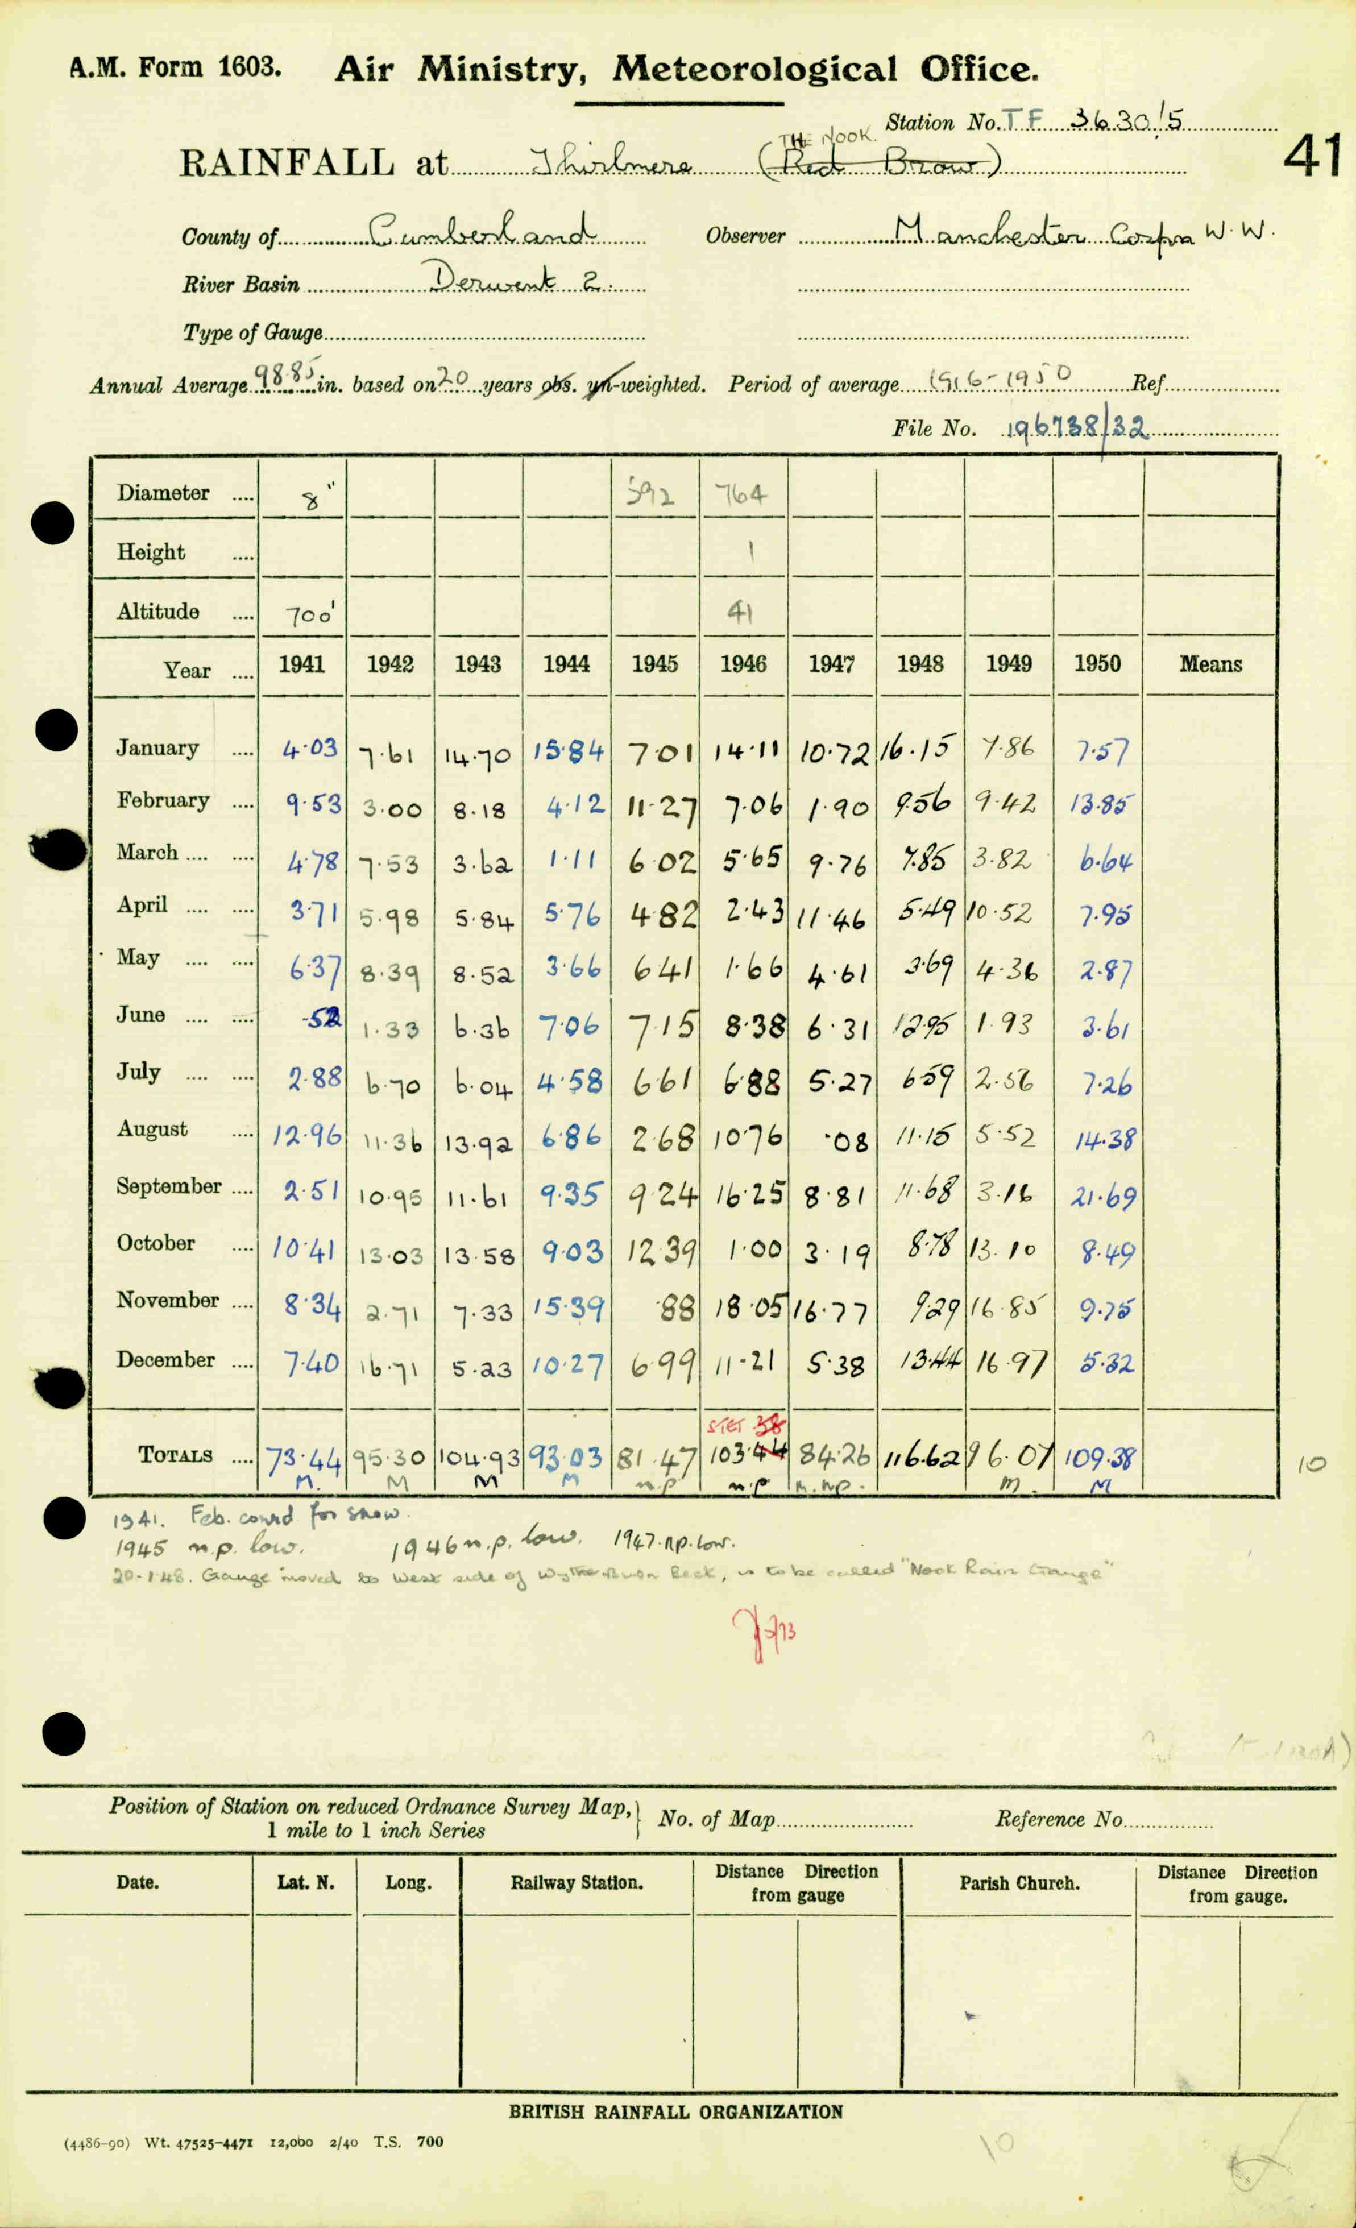 A.M. Form 1603. Air Ministry, Meteorological Office.
Station No. TF 3630/5
41
THE NOOK
RAINFALL at Thirlmere (Red Brow)
County of Cumberland Observer Manchester Corpn W.W.
River Basin Derwent 2.
Type of Gauge
Annual Average 98.85 in. based on 20 years obs. un-weighted. Period of average 1916-1950 Ref.
File No. 196738/32
Diameter 8" 592 764
Height 1
Altitude 700' 41
Year 1941 1942 1943 1944 1945 1946 1947 1948 1949 1950 Means
January 4.03 7.61 14.70 15.84 7.01 14.11 10.72 16.15 7.86 7.57
February 9.53 3.00 8.18 4.12 11.27 7.06 1.90 9.56 9.42 13.85
March 4.78 7.53 3.62 1.11 6.02 5.65 9.76 7.85 3.82 6.64
April 3.71 5.98 5.84 5.76 4.82 2.43 11.46 5.49 10.52 7.95
May 6.37 8.39 8.52 3.66 6.41 1.66 4.61 3.69 4.36 2.87
June .52 1.33 6.36 7.06 7.15 8.38 6.31 12.95 1.93 3.61
July 2.88 6.70 6.04 4.58 6.61 6.88 5.27 6.59 2.56 7.26
August 12.96 11.36 13.92 6.86 2.68 10.76 .08 11.15 5.52 14.38
September 2.51 10.95 11.61 9.35 9.24 16.25 8.81 11.68 3.16 21.69
October 10.41 13.03 13.58 9.03 12.39 1.00 3.19 8.78 13.10 8.49
November 8.34 2.71 7.33 15.39 .88 18.05 16.77 9.29 16.85 9.75
December 7.40 16.71 5.23 10.27 6.99 11.21 5.38 13.44 16.97 5.32
STET 38
TOTALS 73.44 95.30 104.93 93.03 81.47 103.44 84.26 116.62 96.07 109.38
10
M. M M M n.p n.p M. n.p. M. M
1941. Feb. cowrd for snow.
1945 n.p. low. 1946 n.p. low. 1947. n.p. low.
20.1.48. Gauge moved to West side of Wythe Burn Beck, is to be called "Nook Rain Gauge"
Position of Station on reduced Ordnance Survey Map, No. of Map Reference No.
1 mile to 1 inch Series
Date. Lat. N. Long. Railway Station. Distance Direction from gauge Parish Church. Distance Direction from gauge.
BRITISH RAINFALL ORGANIZATION
(4486-90) Wt. 47525-4471 12,000 2/40 T.S. 700
10